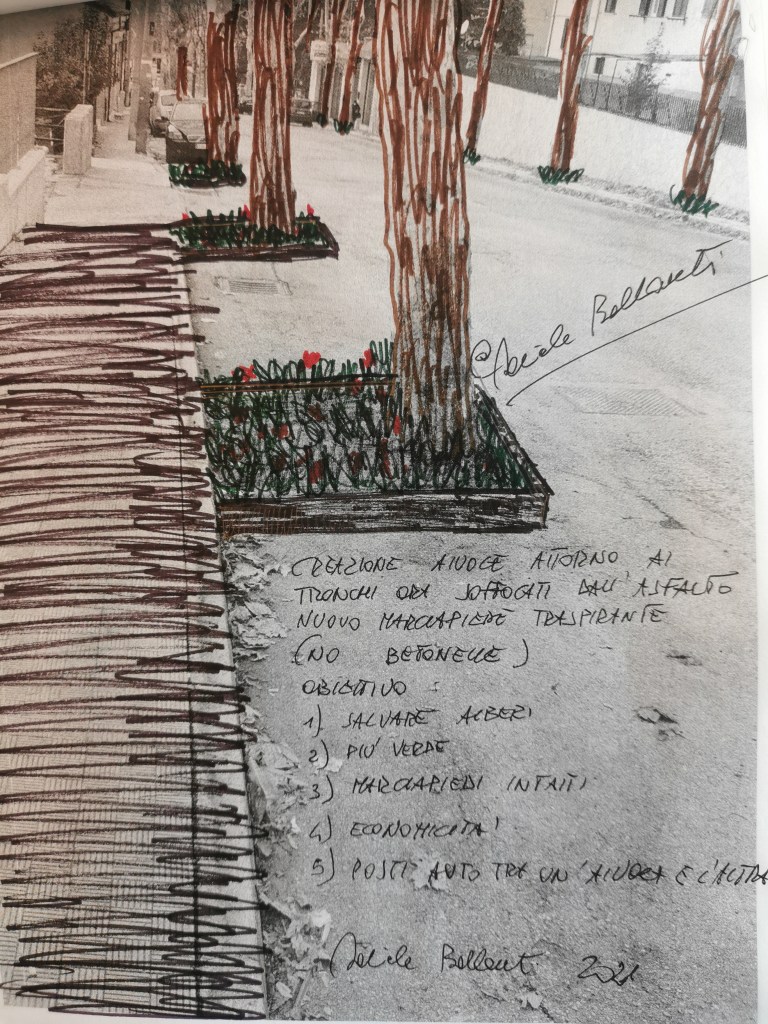 Bellanti
CREAZIONE AIUOLE ATTORNO AI
TRONCHI ORA SOFFOCATI DALL'ASFALTO
NUOVO MARCIAPIEDE TRASPIRANTE
(NO BETONELLE)
OBIETTIVO :
1) SALVARE ALBERI
2) PIU' VERDE
3) MARCIAPIEDI INTATTI
4) ECONOMICITA'
5) POSTI AUTO TRA UN'AIUOLA E L'ALTRA
2021